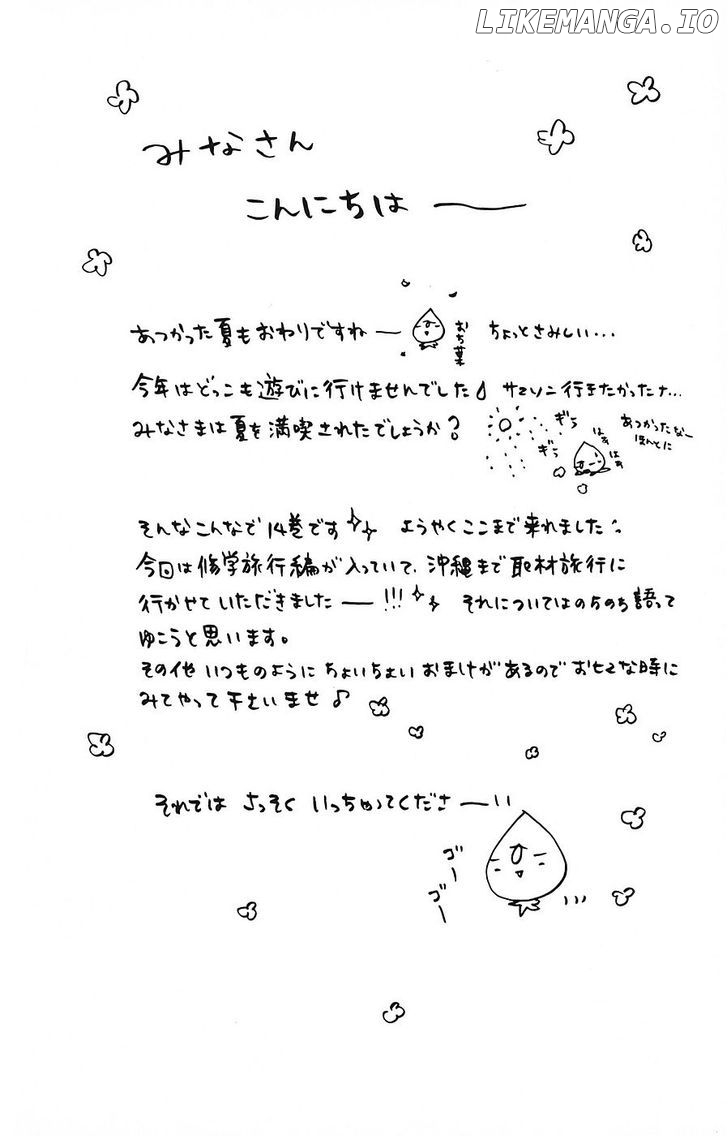 LIKEMANGA.IO
みなさん
こんにちは ――
あつかった夏もおわりですねー
おち葉
ちょっとさみしい…
今年はどっこも遊びに行けませんでした サマソニ行きたかったナ…
みなさまは夏を満喫されたでしょうか？
ぎら
ぎら
はぁ
はぁ
あつかったなー
ほんとに
そんなこんなで14巻です ようやくここまで来れました
今回は修学旅行編が入っていて、沖縄まで取材旅行に
行かせていただきましたー!!! それについてはのちのち語って
ゆこうと思います。
その他 いつものように ちょいちょい おまけがあるので お七マな時に
みてやって下さいませ♪
それでは さっそく いっちゃってくださーい
ゴー
ゴー